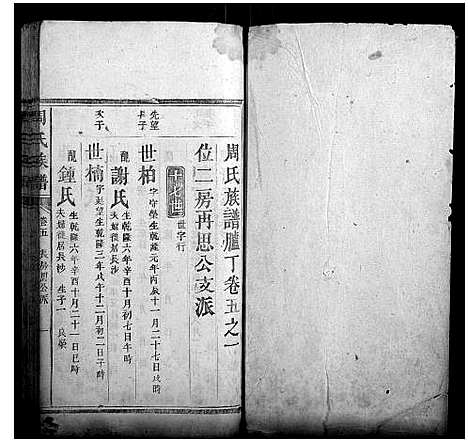 周氏族譜臚丁卷五之一
位二房再思公支派
十七世 世字行
先望長子
世柏 字守榮生乾隆元年丙辰十一月二十七日戌時
配謝氏 生乾隆六年辛酉十月初七日午時
夫婦從居長沙
次子
世楠 字 望生乾隆三年戊午十二月初二日子時
配鍾氏 生乾隆六年辛酉十月二十一日巳時
夫婦從居長沙 生子一 良榮
周氏族譜 卷五 房 公派 一